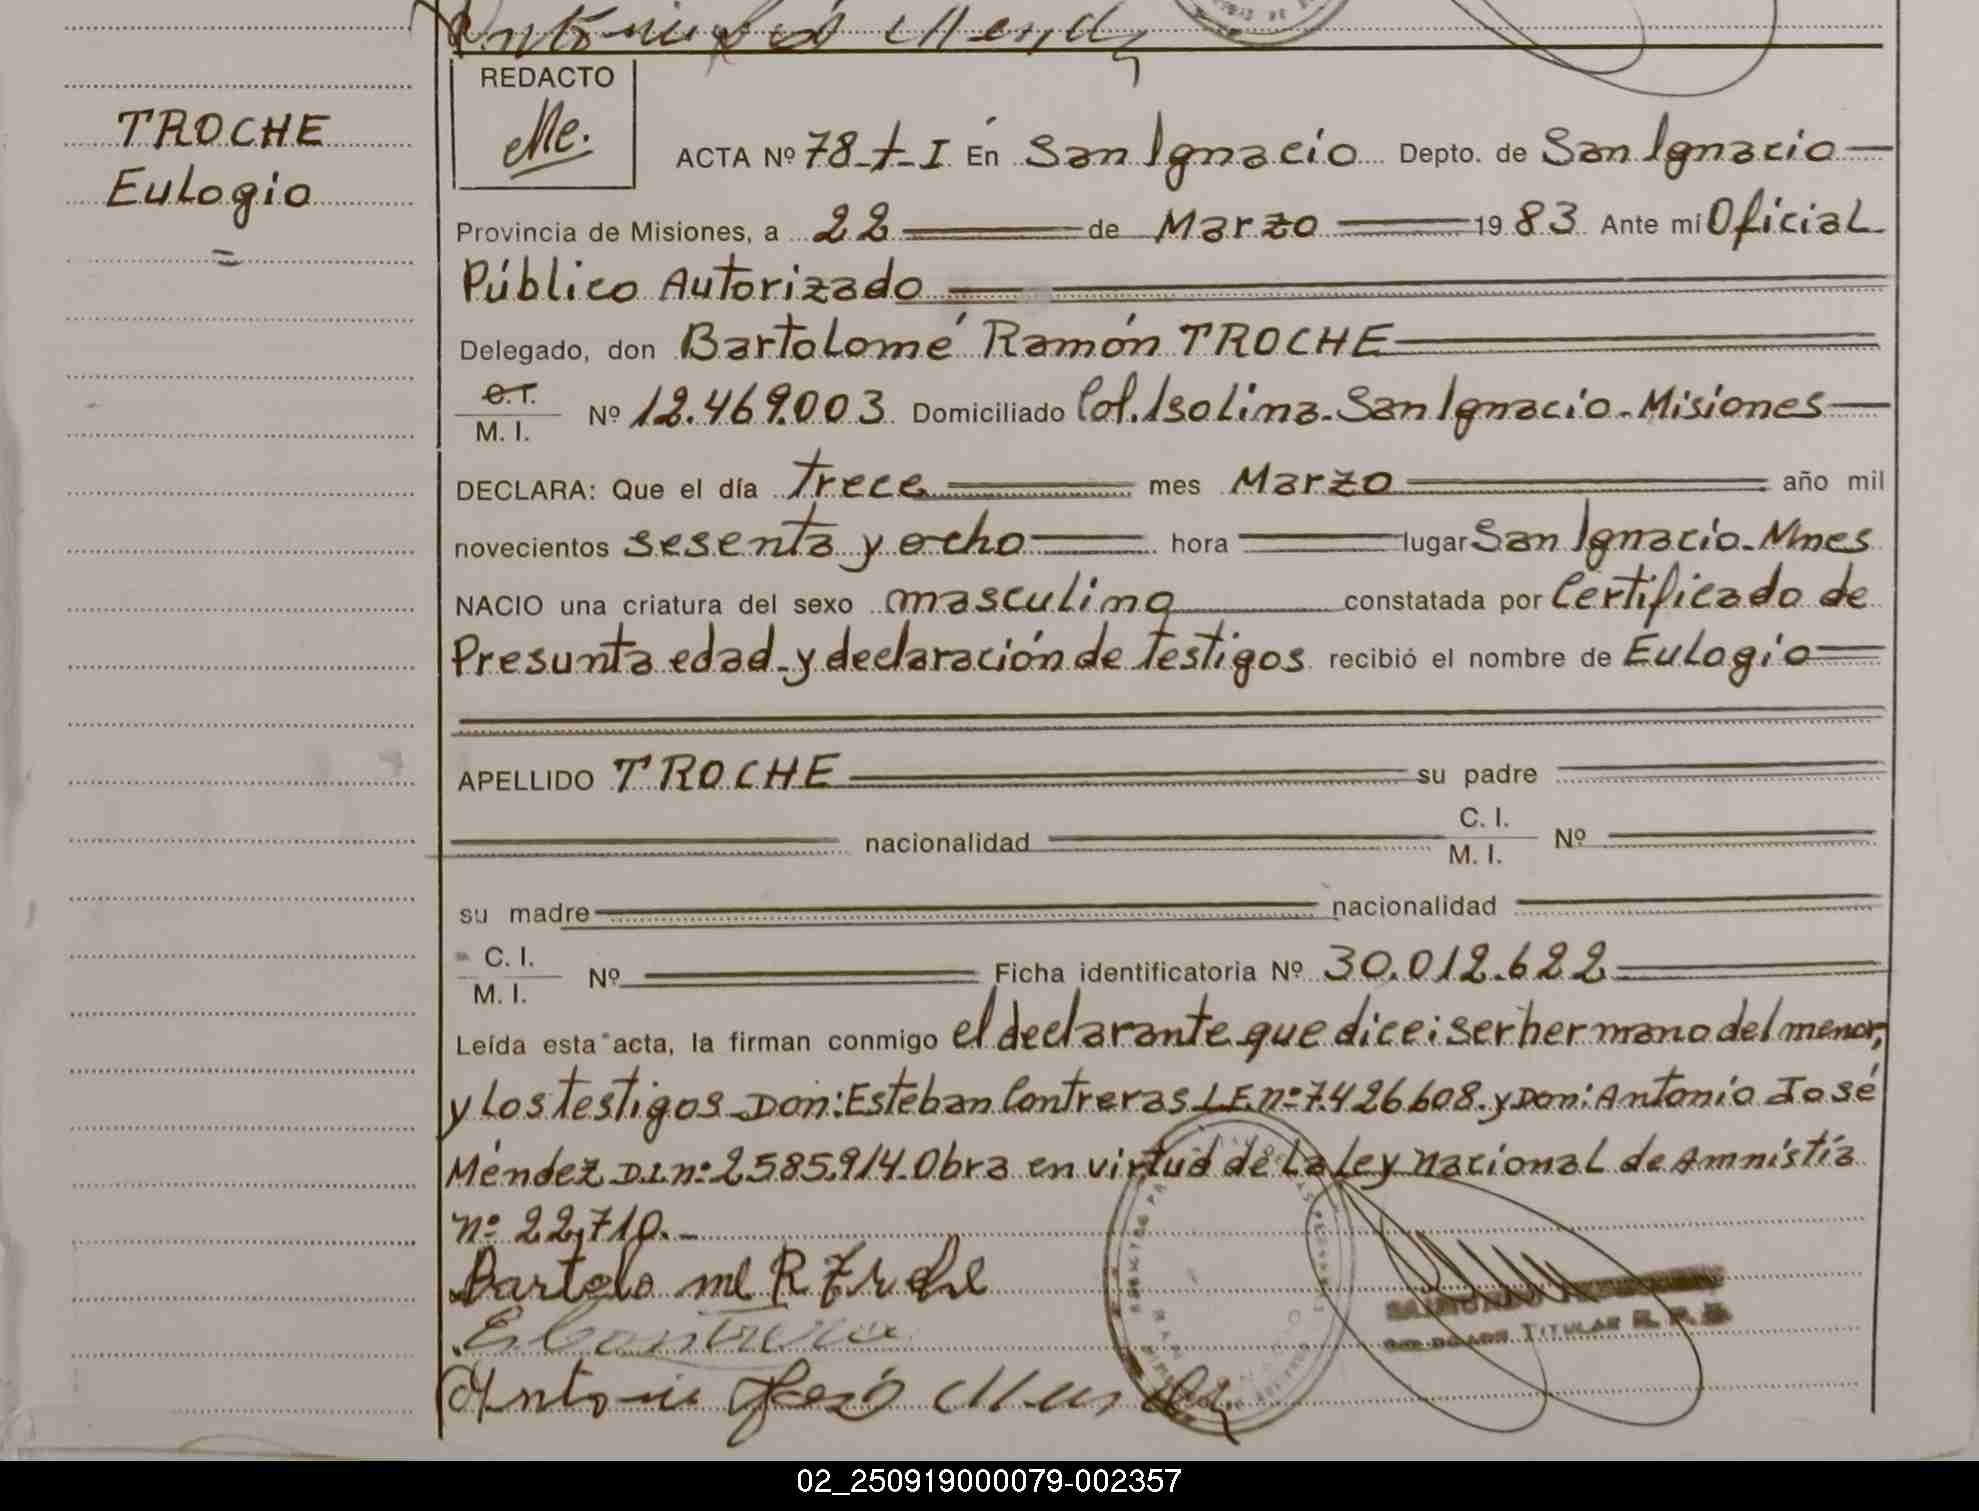 Antonio José Mendz
REDACTO
Me.
TROCHE
Eulogio
=
ACTA Nº 78-t-I En San Ignacio Depto. de San Ignacio
Provincia de Misiones, a 22 de Marzo 1983. Ante mi Oficial
Público Autorizado
Delegado, don Bartolomé Ramón TROCHE
C.I.
M. I. Nº 12.469.003 Domiciliado Col. Isolina-San Ignacio-Misiones
DECLARA: Que el día trece mes Marzo año mil
novecientos sesenta y ocho hora lugar San Ignacio-Mnes
NACIO una criatura del sexo masculino constatada por Certificado de
Presunta edad-y declaración de testigos recibió el nombre de Eulogio
APELLIDO TROCHE su padre
nacionalidad C. I.
M. I. Nº
su madre nacionalidad
C. I.
M. I. Nº Ficha identificatoria Nº 30.012.622
Leída esta acta, la firman conmigo el declarante que dice: ser hermano del menor,
y los testigos Don: Esteban Contreras L.E.nº 7.426.608. y Don: Antonio José
Méndez D.I.nº 2.585.914. Obra en virtud de la Ley Nacional de Amnistía
nº 22,710.-
Bartolo me R Troche
E Contrera
Antonio José
TITULAR R. P. S
02_250919000079-002357